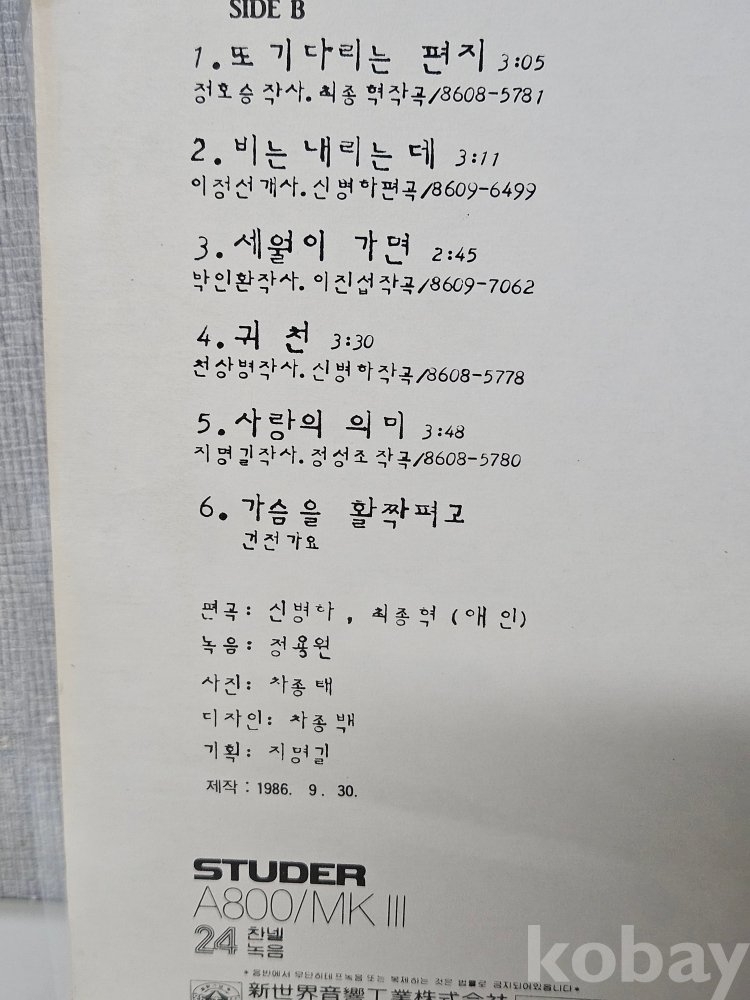 SIDE B
1. 또 기다리는 편지 3:05
정호승작사. 최종혁작곡/8608-5781
2. 비는 내리는데 3:11
이정선개사. 신병하편곡/8609-6499
3. 세월이 가면 2:45
박인환작사. 이진섭작곡/8609-7062
4. 귀천 3:30
천상병작사. 신병하작곡/8608-5778
5. 사랑의 의미 3:48
지명길작사. 정성조작곡/8608-5780
6. 가슴을 활짝펴고
건전가요
편곡: 신병하, 최종혁(애인)
녹음: 정용원
사진: 차종태
디자인: 차종백
기획: 지명길
제작 : 1986. 9. 30.
STUDER
A800/MK III
24 찬넬
녹음
* 음반에서 무단하테프녹음 또는 복제하는 것은 법률로 금지되어있읍니다 *
新世界音響工業株式会社
kobay